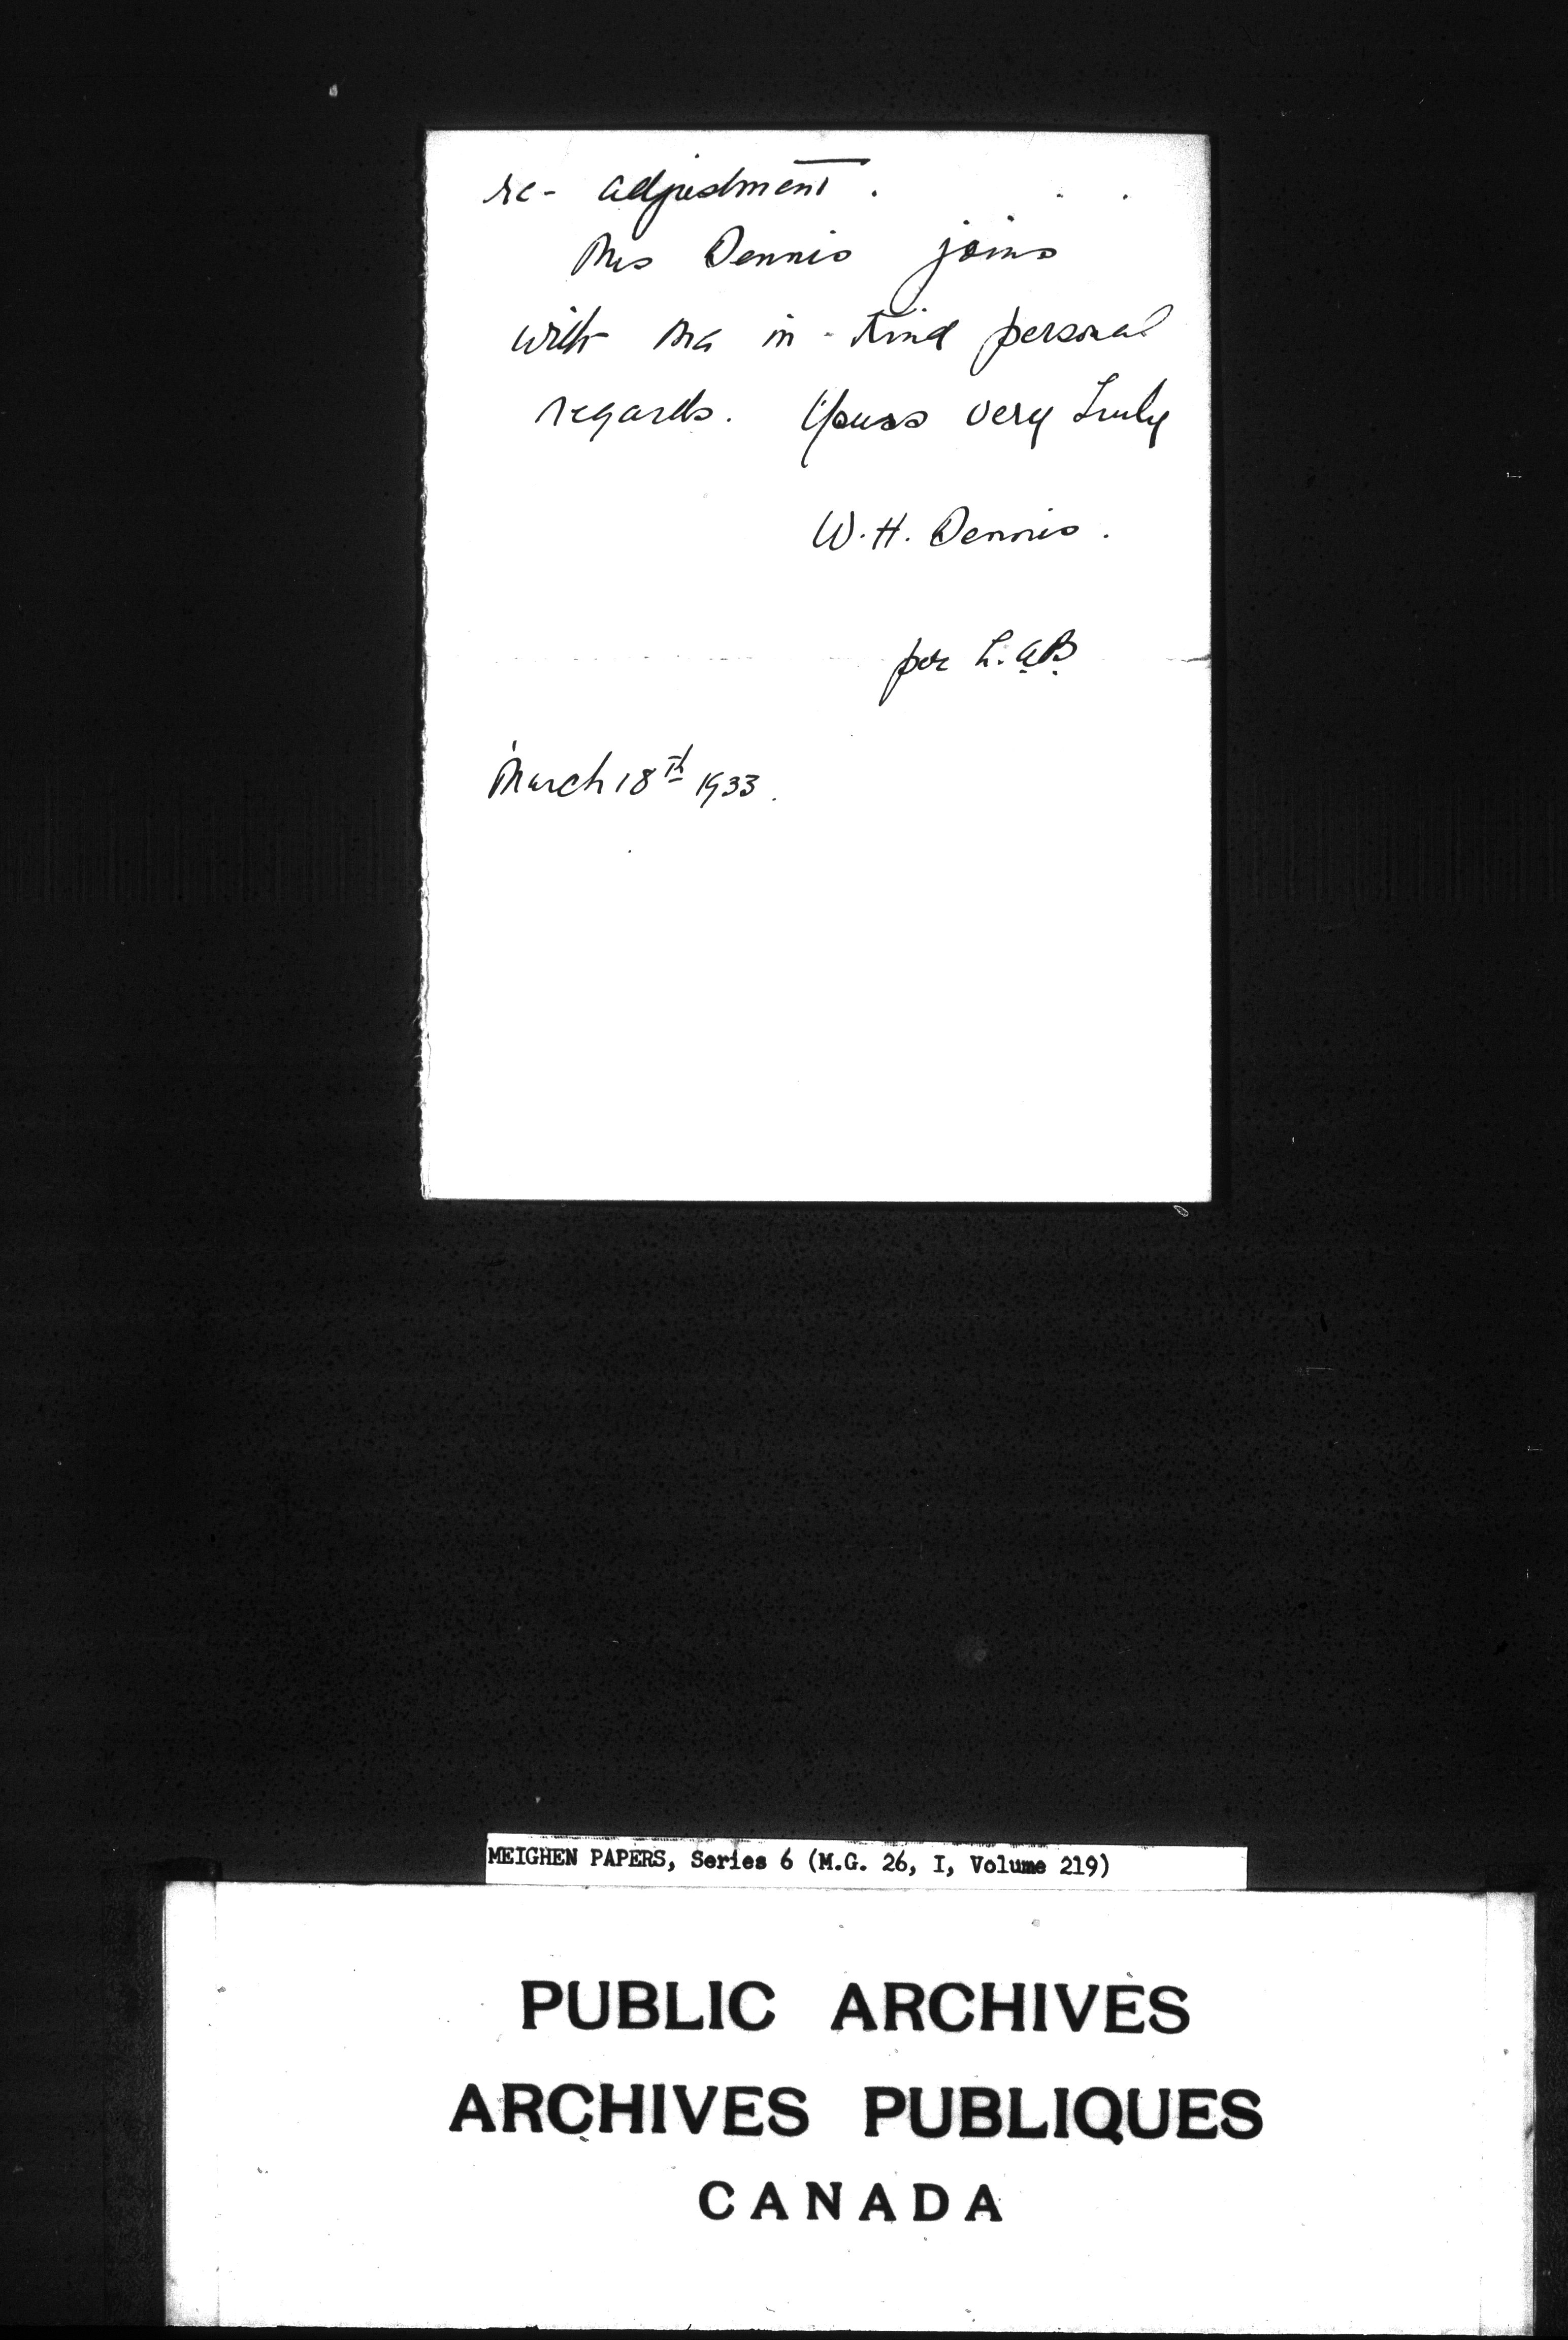 re- adjustment.
Mrs Dennis joins
with me in kind personal
regards. Yours very truly
W. H. Dennis.
per L.A.B.
March 18th 1933.
MEIGHEN PAPERS, Series 6 (M.G. 26, I, Volume 219)
PUBLIC ARCHIVES
ARCHIVES PUBLIQUES
CANADA